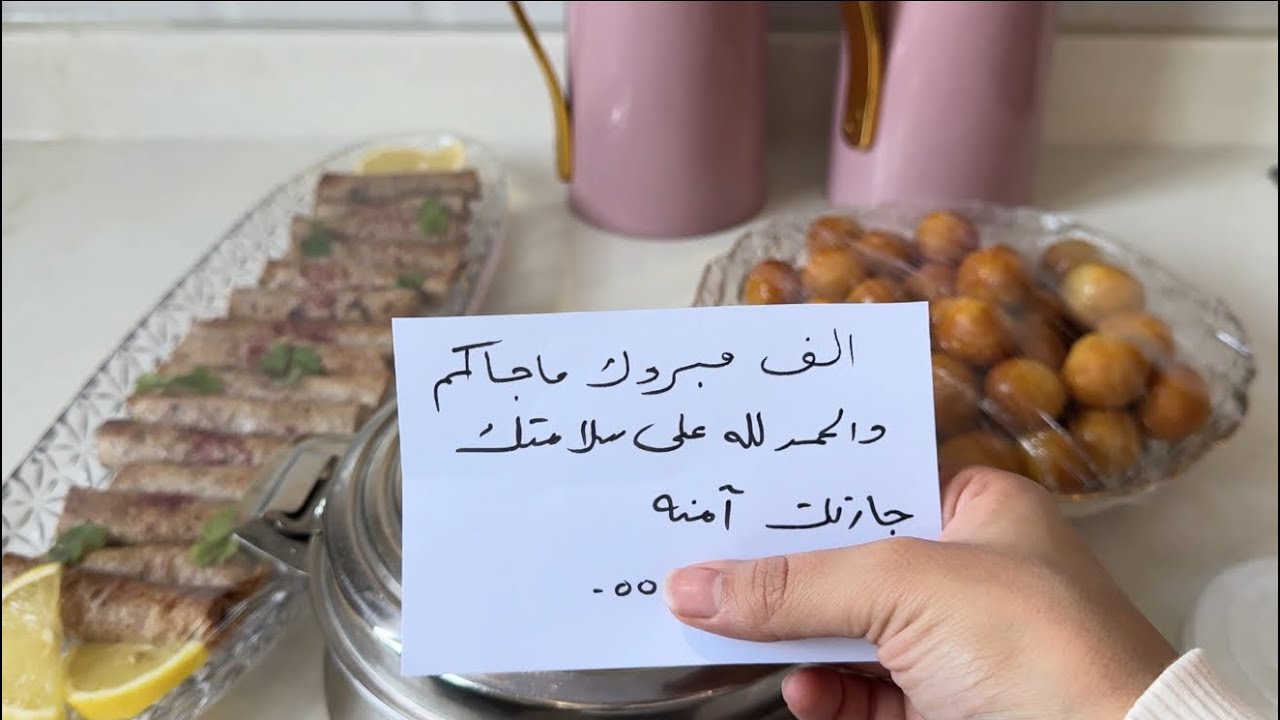 الف مبروك ماجاكم
والحمدلله على سلامتك
جارتك آمنه
٠٥٥